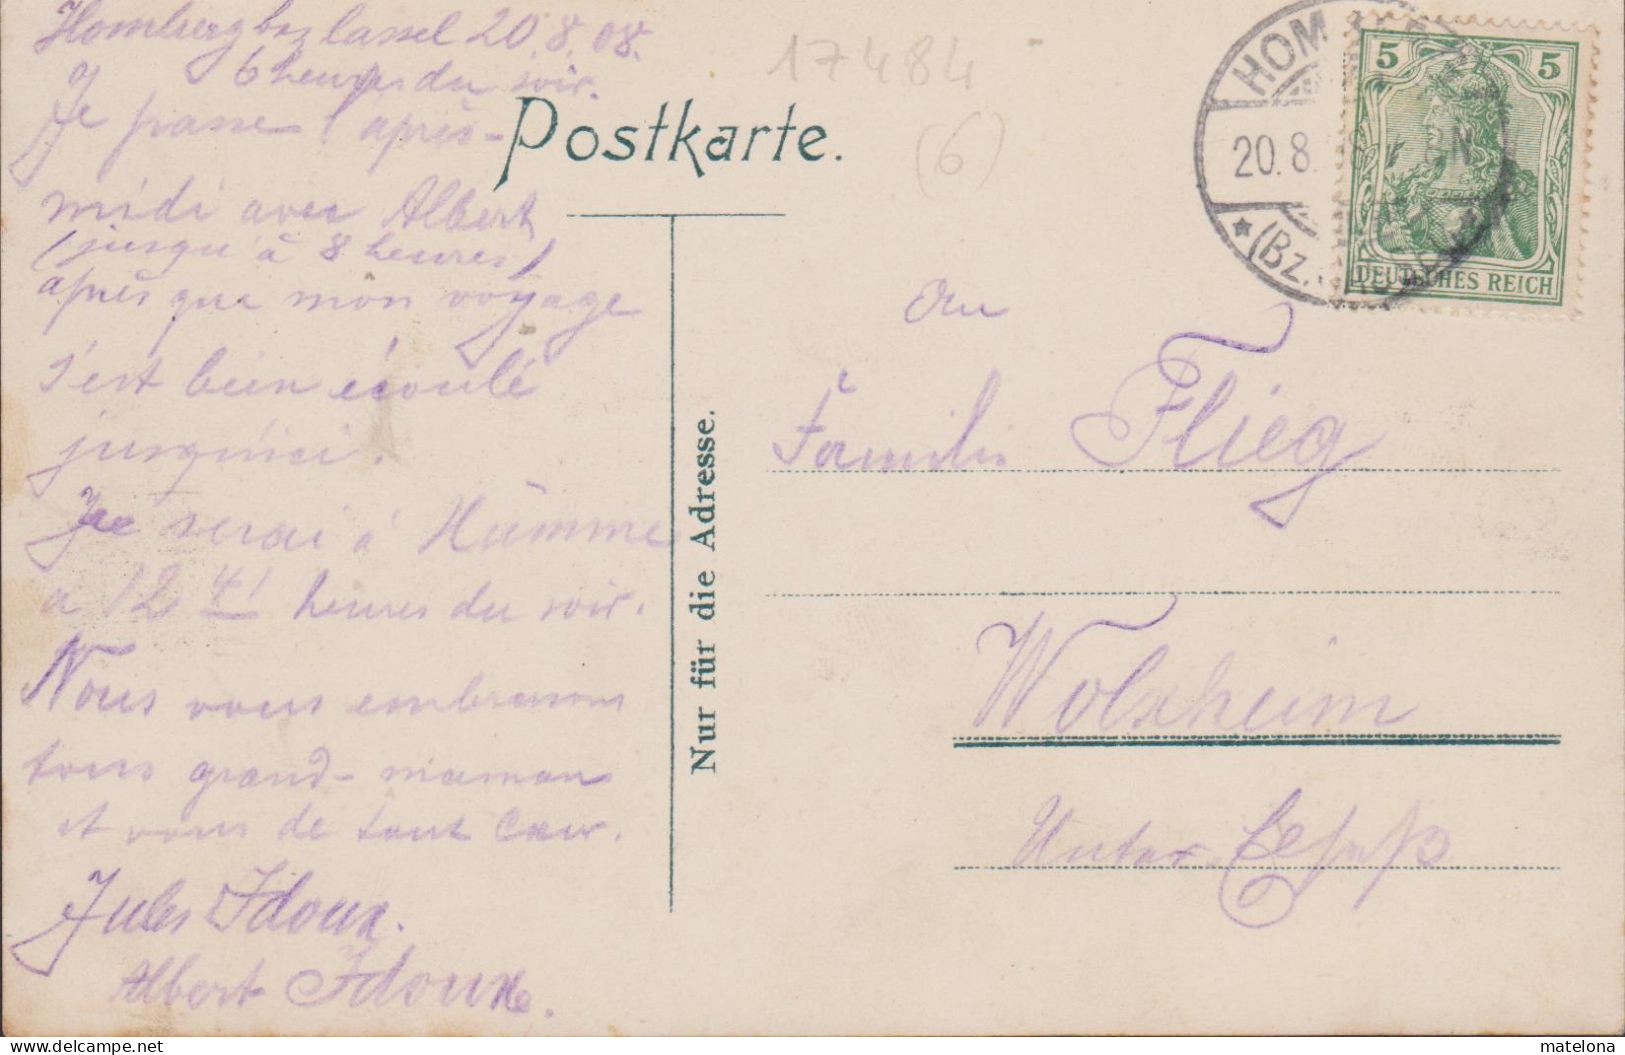 Homberg bz Cassel 20.8.08.
6 heures du soir.
Je passe l'après-
midi avec Albert
(jusqu'à 8 heures)
après que mon voyage
s'est bien écoulé
jusqu'ici.
Je serai à Hümme
a 12 41 heures du soir.
Nous vous embrassons
tous grand-maman
et vous de tout cœur.
Jules Idoux.
Albert Idoux.
17484
(6)
Postkarte.
Nur für die Adresse.
HOM
20.8.
N
(Bz.
5 5
DEUTSCHES REICH
An
Familie Flieg
Wolxheim
Unter-Elsaß
matelona